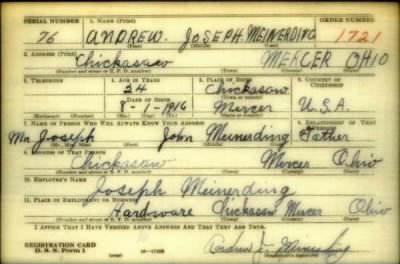 SERIAL NUMBER 1. NAME (Print) ORDER NUMBER
76 ANDREW. JOSEPH MEINERDING 1721
(First) (Middle) (Last)
2. ADDRESS (Print)
Chickasaw MERCER OHIO
(Number and street or R. F. D. number) (Town) (County) (State)
3. TELEPHONE 4. AGE IN YEARS 5. PLACE OF BIRTH 6. COUNTRY OF CITIZENSHIP
24 Chickasaw
DATE OF BIRTH (Town or county)
8-1-1916 Mercer U.S.A.
(Exchange) (Number) (Mo.) (Day) (Yr.) (State or country)
7. NAME OF PERSON WHO WILL ALWAYS KNOW YOUR ADDRESS 8. RELATIONSHIP OF THAT PERSON
Mr. Joseph John Meinerding Father
(Mr., Mrs., Miss) (First) (Middle) (Last)
9. ADDRESS OF THAT PERSON
Chickasaw Mercer Ohio
(Number and street or R. F. D. number) (Town) (County) (State)
10. EMPLOYER'S NAME
Joseph Meinerding
11. PLACE OF EMPLOYMENT OR BUSINESS
Hardware Chickasaw Mercer Ohio
(Number and street or R. F. D. number) (Town) (County) (State)
I AFFIRM THAT I HAVE VERIFIED ABOVE ANSWERS AND THAT THEY ARE TRUE.
REGISTRATION CARD
D. S. S. Form 1 (over) 16-17105 Andrew J. Meinerding
(Registrant's signature)